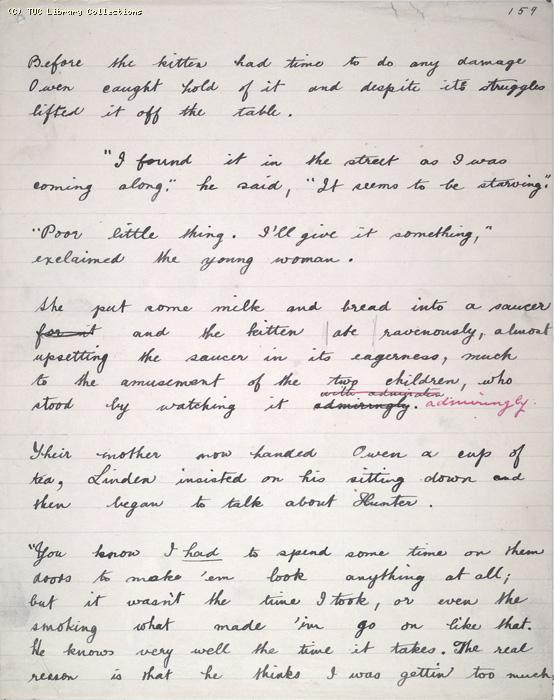 (C) TUC Library Collections
159
Before the kitten had time to do any damage
Owen caught hold of it and despite its struggles
lifted it off the table.
"I found it in the street as I was
coming along," he said, "It seems to be starving."
"Poor little thing. I'll give it something,"
exclaimed the young woman.
She put some milk and bread into a saucer
for it and the kitten ate ravenously, almost
upsetting the saucer in its eagerness, much
to the amusement of the two children, who
with admiration
stood by watching it admiringly. admiringly.
Their mother now handed Owen a cup of
tea, Linden insisted on his sitting down and
then began to talk about Hunter.
"You know I had to spend some time on them
doors to make 'em look anything at all;
but it wasn't the time I took, or even the
smoking what made 'im go on like that.
He knows very well the time it takes. The real
reason is that he thinks I was gettin' too much